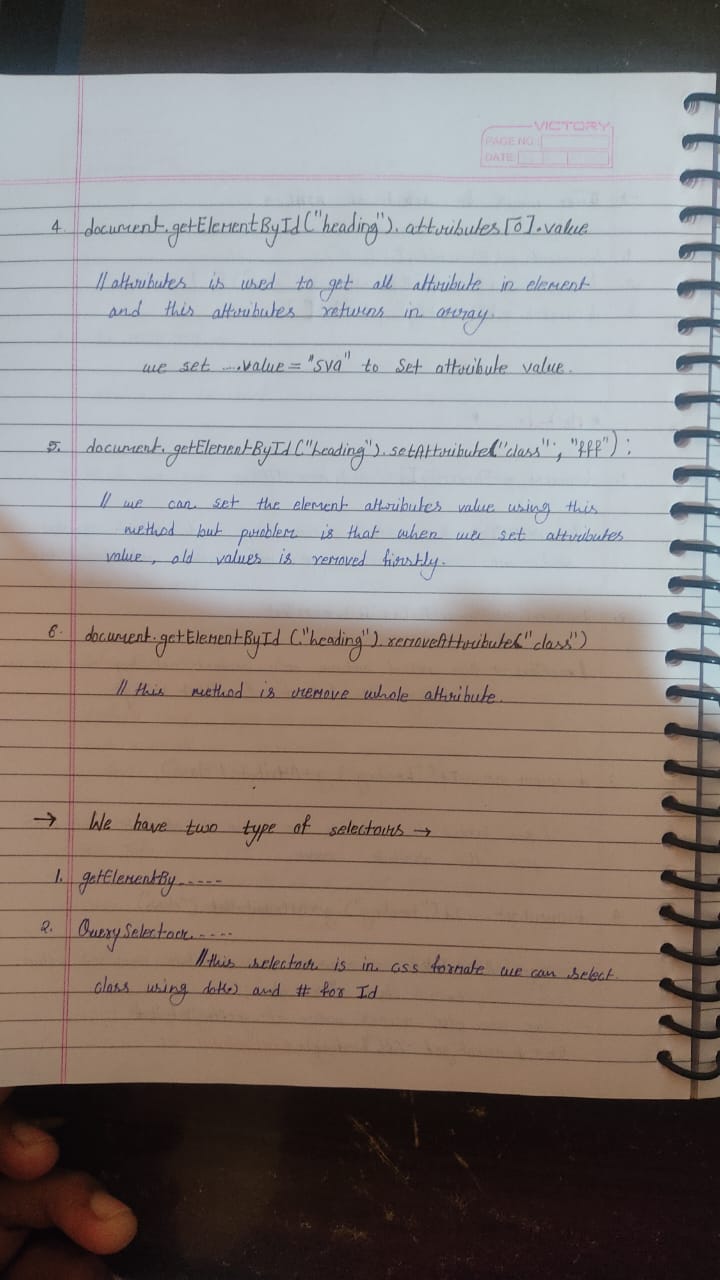 VICTORY
PAGE NO.:
DATE:
4. document.getElementById("heading").attributes[0].value
// attributes is used to get all attribute in element
and this attributes returns in array.
we set ....value = "sva" to set attribute value.
5. document.getElementById("heading").setAttribute("class", "fff");
// we can set the element attributes value using this
method but problem is that when we set attributes
value, old values is removed firstly.
6. document.getElementById("heading").removeAttribute("class")
// this method is remove whole attribute.
→ We have two type of selectors →
1. getElementBy.-----
2. QuerySelector.----
//this selector is in css formate we can select
class using dot(.) and # for Id